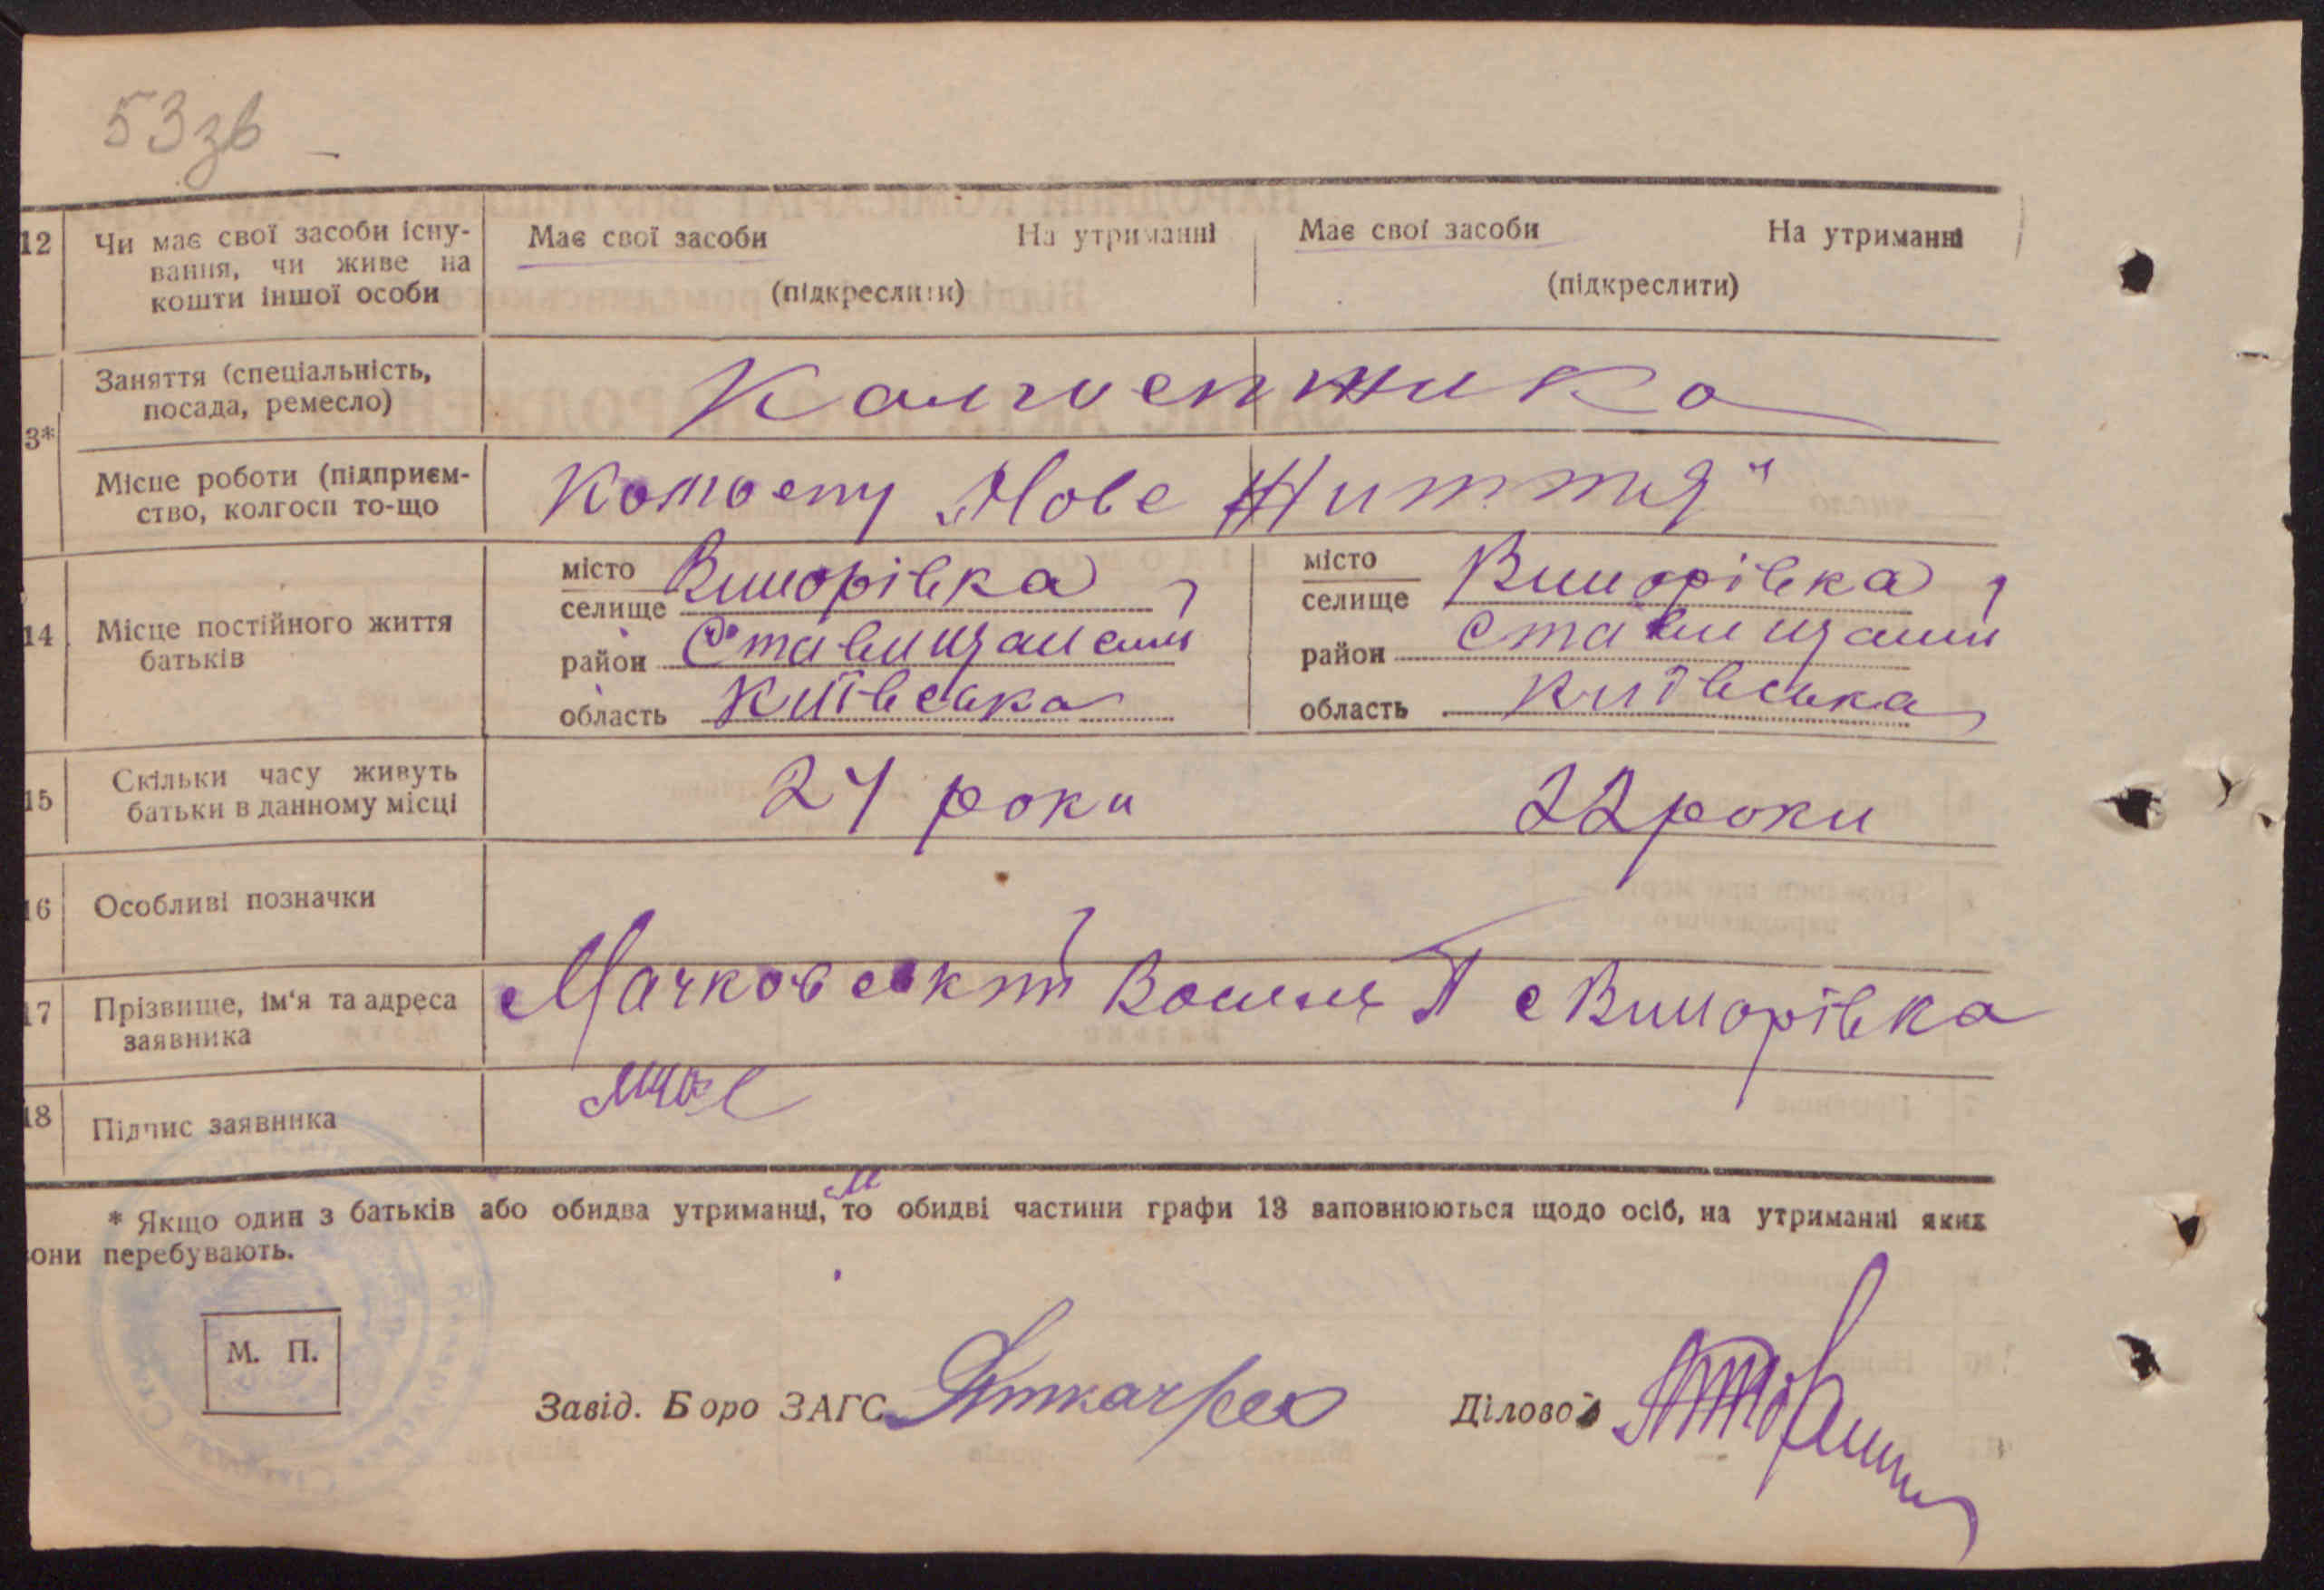 53 зв
12 Чи має свої засоби існу-
вання, чи живе на
кошти іншої особи
Має свої засоби На утриманні Має свої засоби На утриманні
(підкреслити) (підкреслити)
Заняття (спеціальність,
посада, ремесло)
3*
Місце роботи (підприєм-
ство, колгосп то-що
Нове Життя"
14 Місце постійного життя
батьків
місто
селище Винорівка
район
область Київська
місто
селище Винорівка
район
область Київська
15 Скільки часу живуть
батьки в данному місці
24 роки 22 роки
16 Особливі позначки
17 Прізвище, ім'я та адреса
заявника
Мачковский П с Винорівка
18 Підпис заявника
* Якщо один з батьків або обидва утриманці, то обидві частини графи 13 заповнюються щодо осіб, на утриманні яких
вони перебувають.
М. П.
Завід. Бюро ЗАГС Діловод